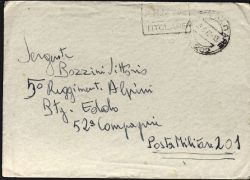 TITOLARE
Sergente
Bozzini Vittorio
5º Reggiment. Alpini
Btg. Edolo
52ª Compagnia
Posta Militare 201